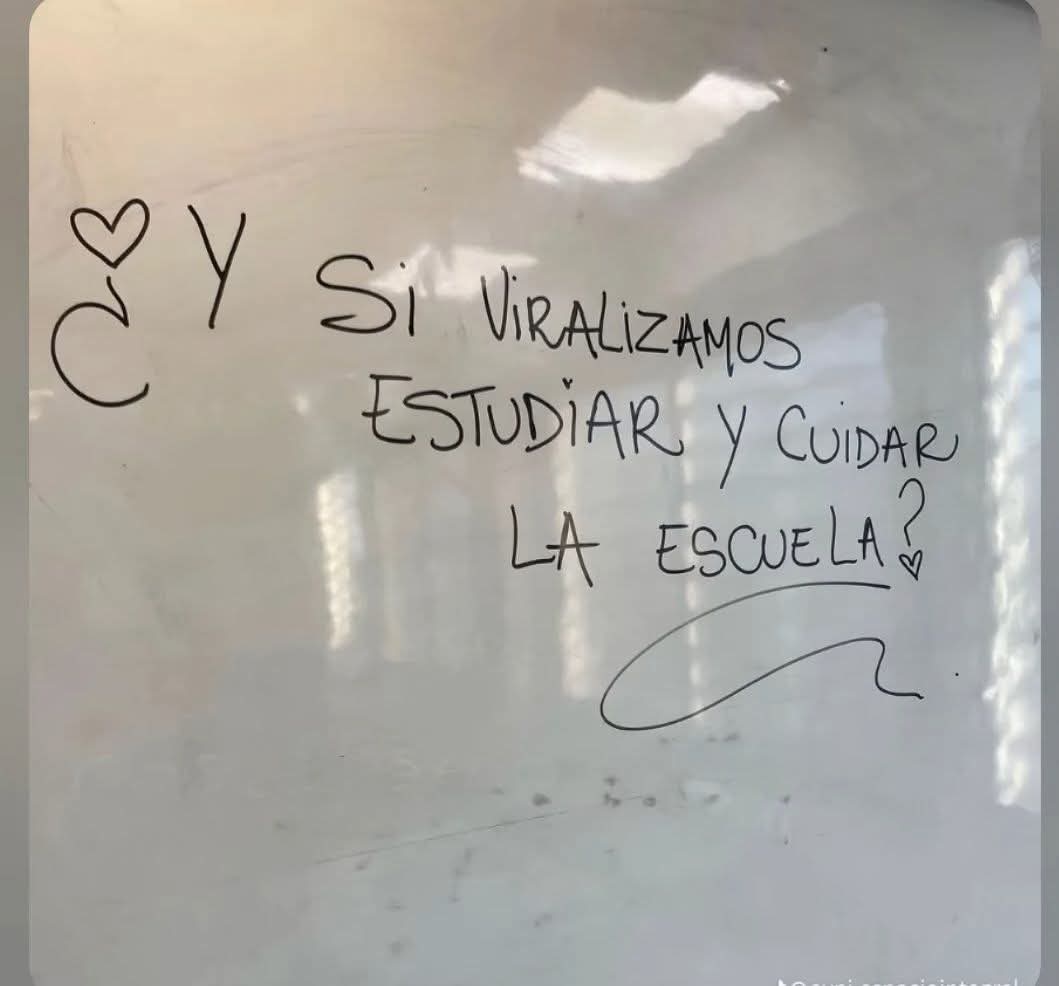 ¿Y Si ViRALiZAMOS
ESTUDiAR Y CUiDAR
LA ESCUELA?